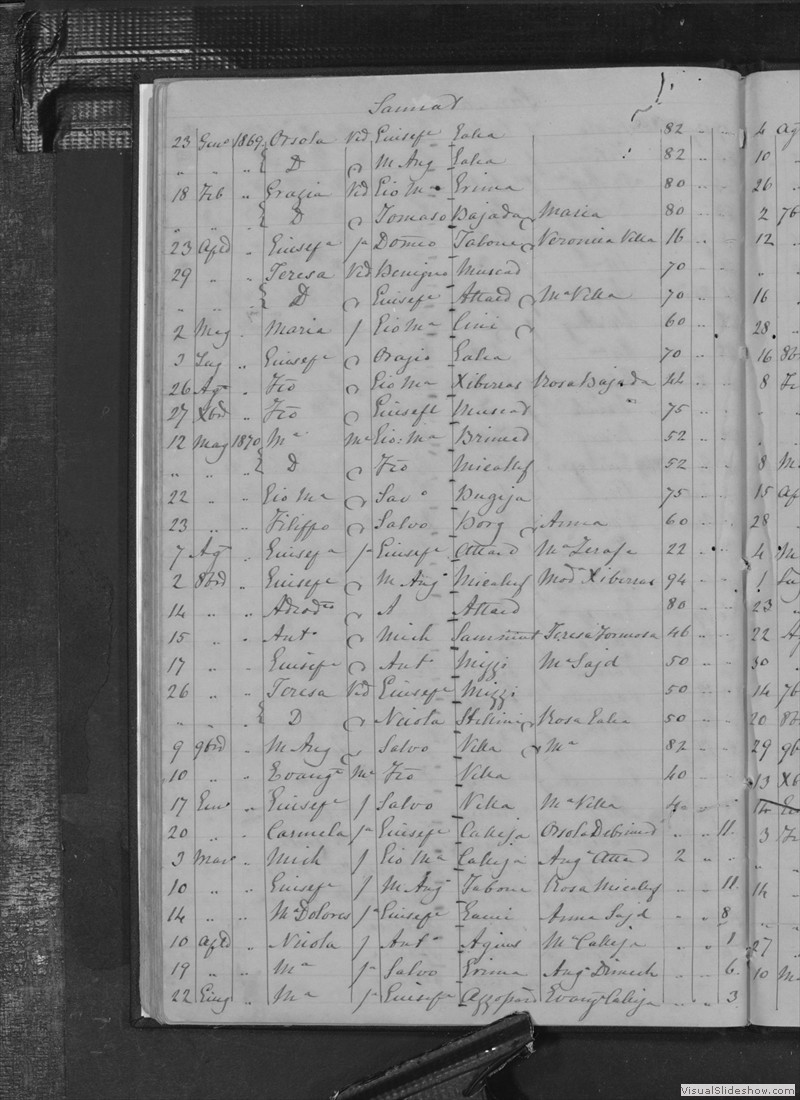 Sannat
23 Gen° 1869 Orsola Vid Giusepe Galea 82 .. ..
" " " D M Ang Galea 82 .. ..
18 Feb " Grazia Vid Gio Ma Grima 80 .. ..
" " " D Tomaso Bajada Maria 80 .. ..
23 Aple " Giusepa fa Domco Tabone Veronica Vella 16 ..
29 " " Teresa Vid Benigno Muscad 70
" " " D Giusepe Attard Ma Vella 70 .. ..
2 Mag " Maria f Gio Ma Cini 60 .. ..
3 Lug " Giusepe Orazio Galea 70 .. ..
26 Ag " Fco Gio Ma Xiberras Rosa Bajada 44 .. ..
27 Xbre " Fco Giusepe Muscat 75 .. ..
12 Mag 1870 Ma Ma Gio: Ma Brimed 52 .. ..
" " " D Fco Micallef 52 .. ..
22 " " Gio Ma Savo Bugeja 75 .. ..
23 " " Filippo Salvo Borg Anna 60 .. ..
7 Ag " Giusepa fa Giusepe Attard Ma Zerafa 22 .. ..
2 8bre " Giusepe M Ang Micallef Mad Xiberras 94 .. ..
14 " " A Attard 80 .. ..
15 " " Anto Mich Sammut Teresa Formosa 46 .. ..
17 " " Giusepe Ant Mizzi Ma Sajd 50 .. ..
26 " " Teresa Vid Giusepe Mizzi 50 .. ..
" " " D Nicola Stellini Rosa Galea 50 .. ..
9 9bre " M Ang Salvo Vella Ma 82 .. ..
10 " " Evanga Ma Fco Vella 40 .. ..
17 Gen° " Giusepe f Salvo Vella Ma Vella 4 .. ..
20 " " Carmela fa Giusepe Calleja Orsola Debrincat .. .. 11
3 Mar " Mich f Gio Ma Calleja Anga Attard 2 .. ..
10 " " Giusepe f M Ang Tabone Rosa Micallef .. .. 11
14 " " Ma Dolores fa Giusepe Gauci Anna Sajd .. .. 8
10 Aple " Nicola f Anto Agius Ma Calleja .. .. 1
19 " " Ma fa Salvo Grima Anga Dimech .. .. 6
22 Giug " Ma fa Giusepe Azzopardi Evanga Calleja .. .. 3
VisualSlideshow.com